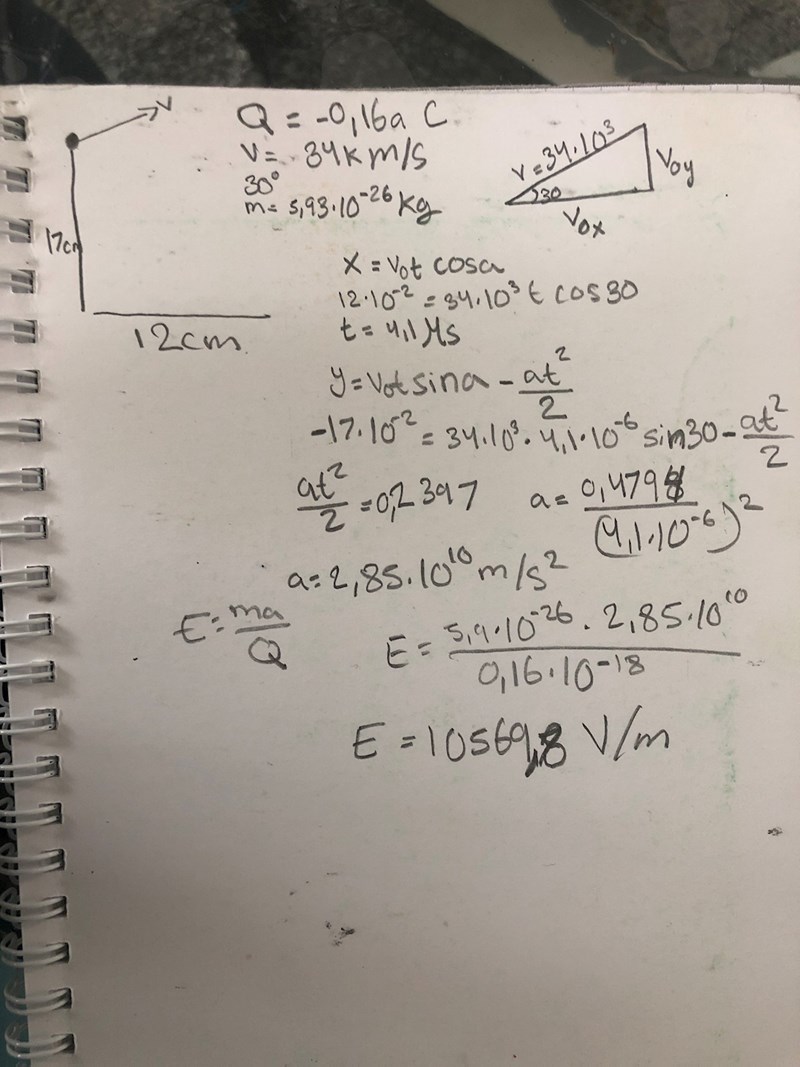 V
Q = -0,16a C
V = 34km/s
30°
m = 5,93·10⁻²⁶ kg
V = 34·10³
30
Voy
Vox
17cm
12cm
x = Vot cosa
12·10⁻² = 34·10³ t cos30
t = 4,1 Ms
y = Vot sina - at²/2
-17·10⁻² = 34·10³·4,1·10⁻⁶ sin30 - at²/2
at²/2 = 0,2397 a = 0,479/(4,1·10⁻⁶)²
a = 2,85·10¹⁰ m/s²
E = ma/Q E = 5,9·10⁻²⁶·2,85·10¹⁰/0,16·10⁻¹⁸
E = 10569,8 V/m